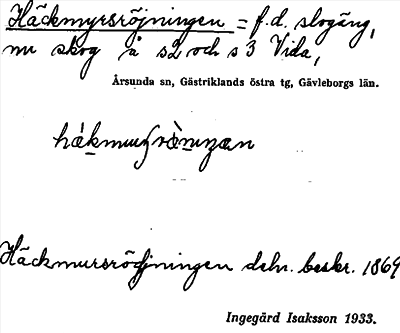 Häckmyrsröjningen = f.d. slogäng,
nu skog å s2 och s3 Vida,
Årsunda sn, Gästriklands östra tg, Gävleborgs län.
Häckmursrödjningen deln. beskr. 1869
Ingegärd Isaksson 1933.